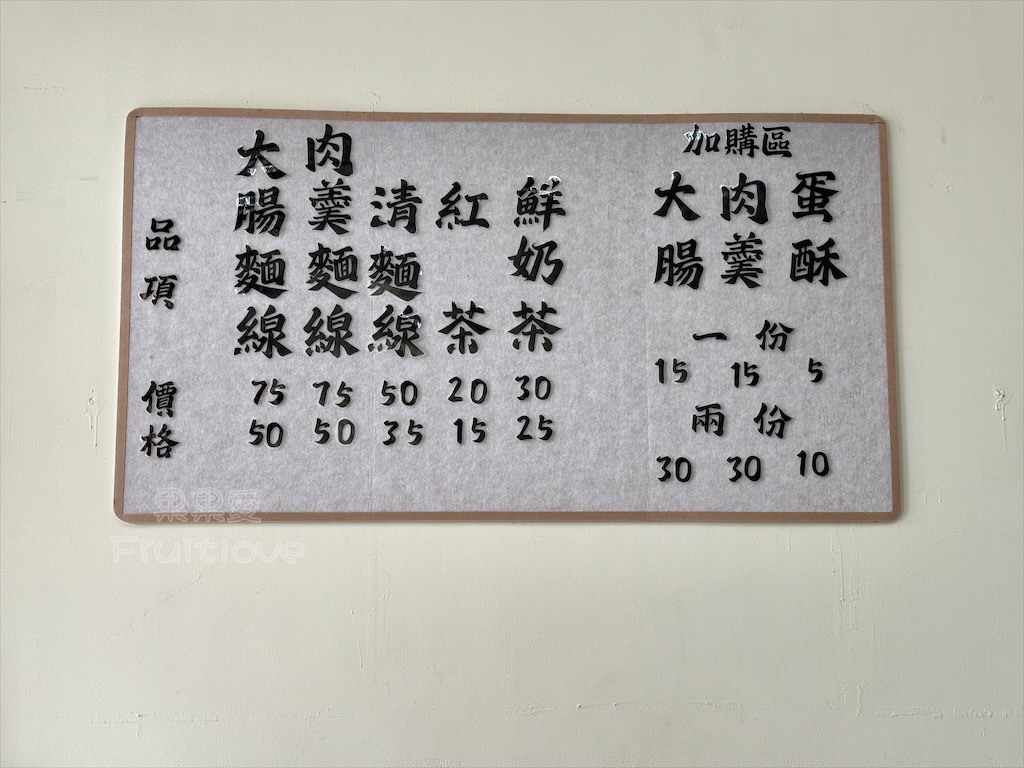 品項
價格
大腸麵線
75
50
肉羹麵線
75
50
清麵線
50
35
紅茶
20
15
鮮奶茶
30
25
加購區
大腸
肉羹
蛋酥
一份
15 15 5
兩份
30 30 10
果果愛
Fruitlove